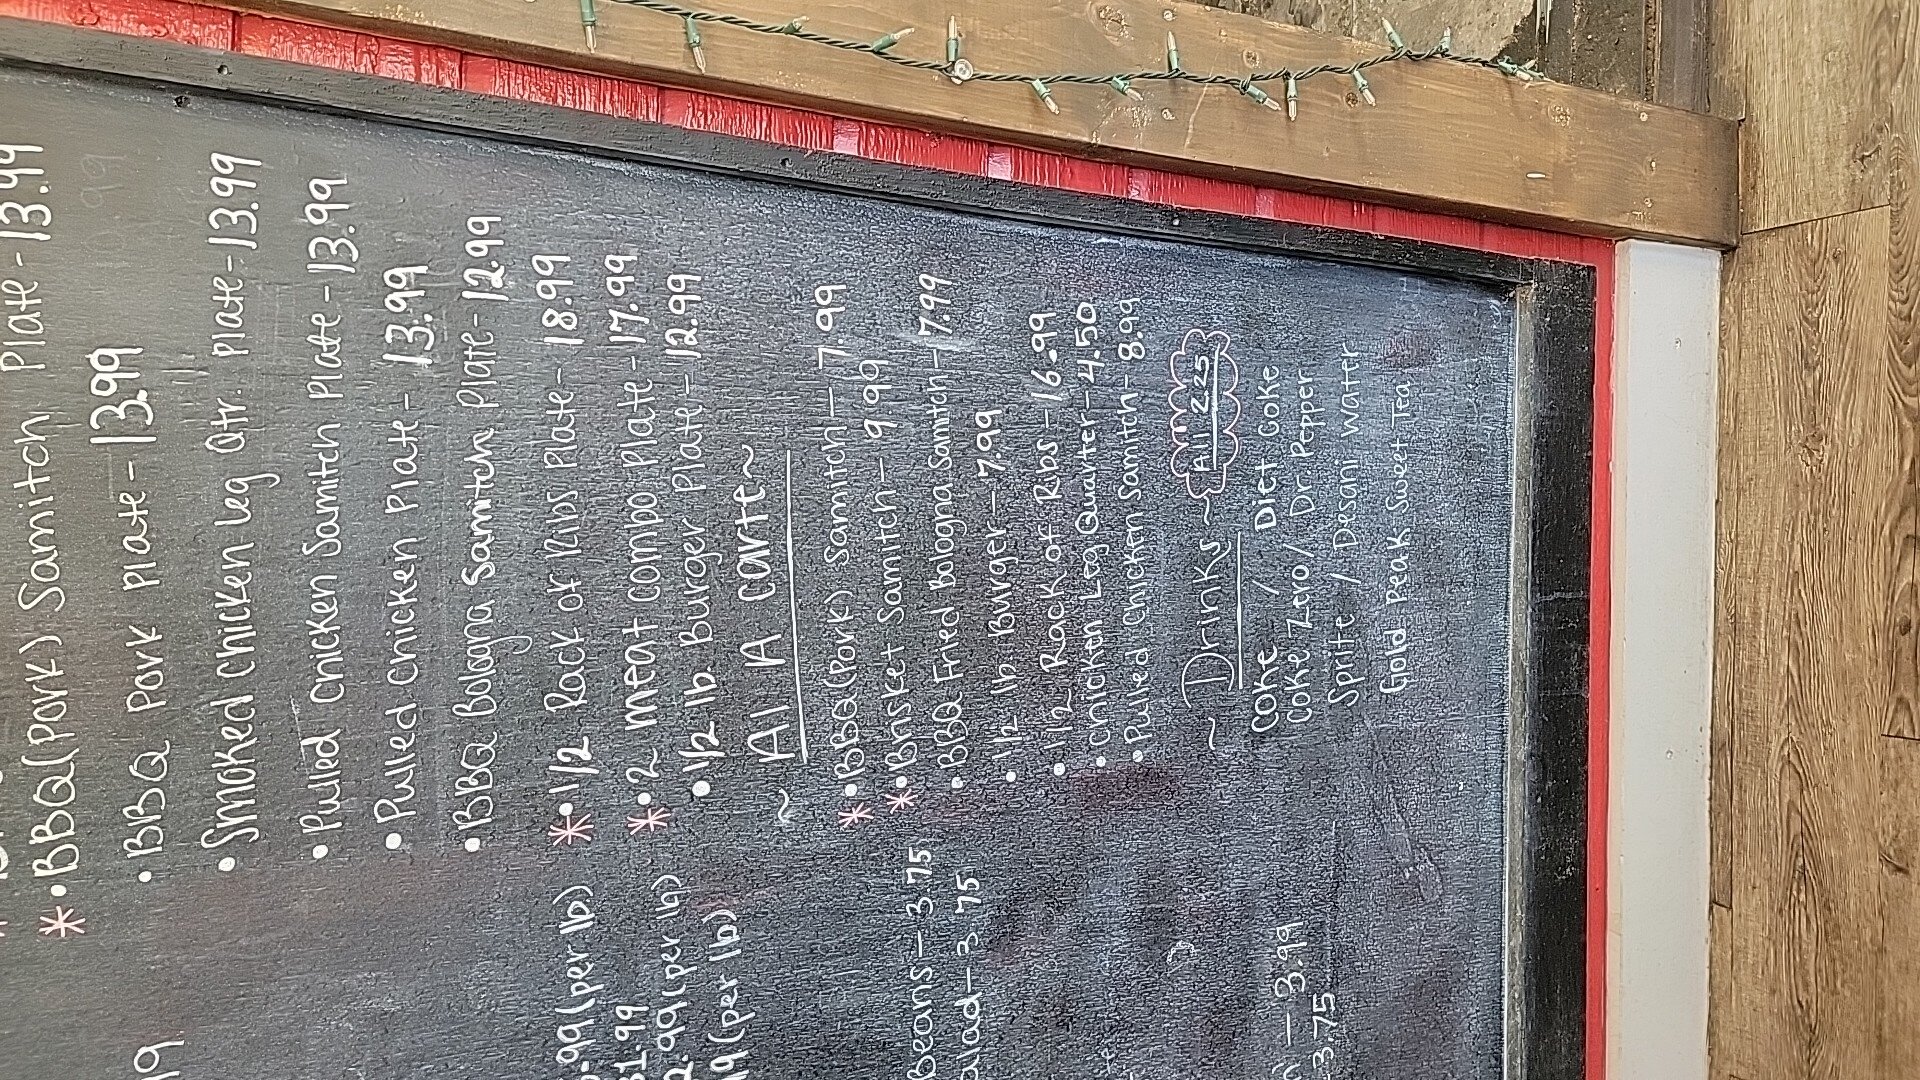 * • BBQ (Pork) Samitch Plate - 13.99
• BBQ Pork Plate - 13.99
• Smoked Chicken Leg Qtr. Plate - 13.99
• Pulled Chicken Samitch Plate - 13.99
• Pulled Chicken Plate - 13.99
• BBQ Bologna Samitch Plate - 12.99
* • 1/2 Rack of Ribs Plate - 18.99
* • 2 Meat Combo Plate - 17.99
• 1/2 lb. Burger Plate - 12.99
~ Al A Carte ~
* • BBQ (Pork) Samitch - 7.99
* • Brisket Samitch - 9.99
• BBQ Fried Bologna Samitch - 7.99
• 1/2 lb Burger - 7.99
• 1/2 Rack of Ribs - 16.99
• Chicken Leg Quarter - 4.50
• Pulled Chicken Samitch - 8.99
~ Drinks ~ All 2.25
Coke / Diet Coke
Coke Zero / Dr. Pepper
Sprite / Desani Water
Gold Peak Sweet Tea
.99 (per lb)
31.99
2.99 (per lb)
(per lb)
Beans - 3.75
- 3.75
- 3.99
- 3.75